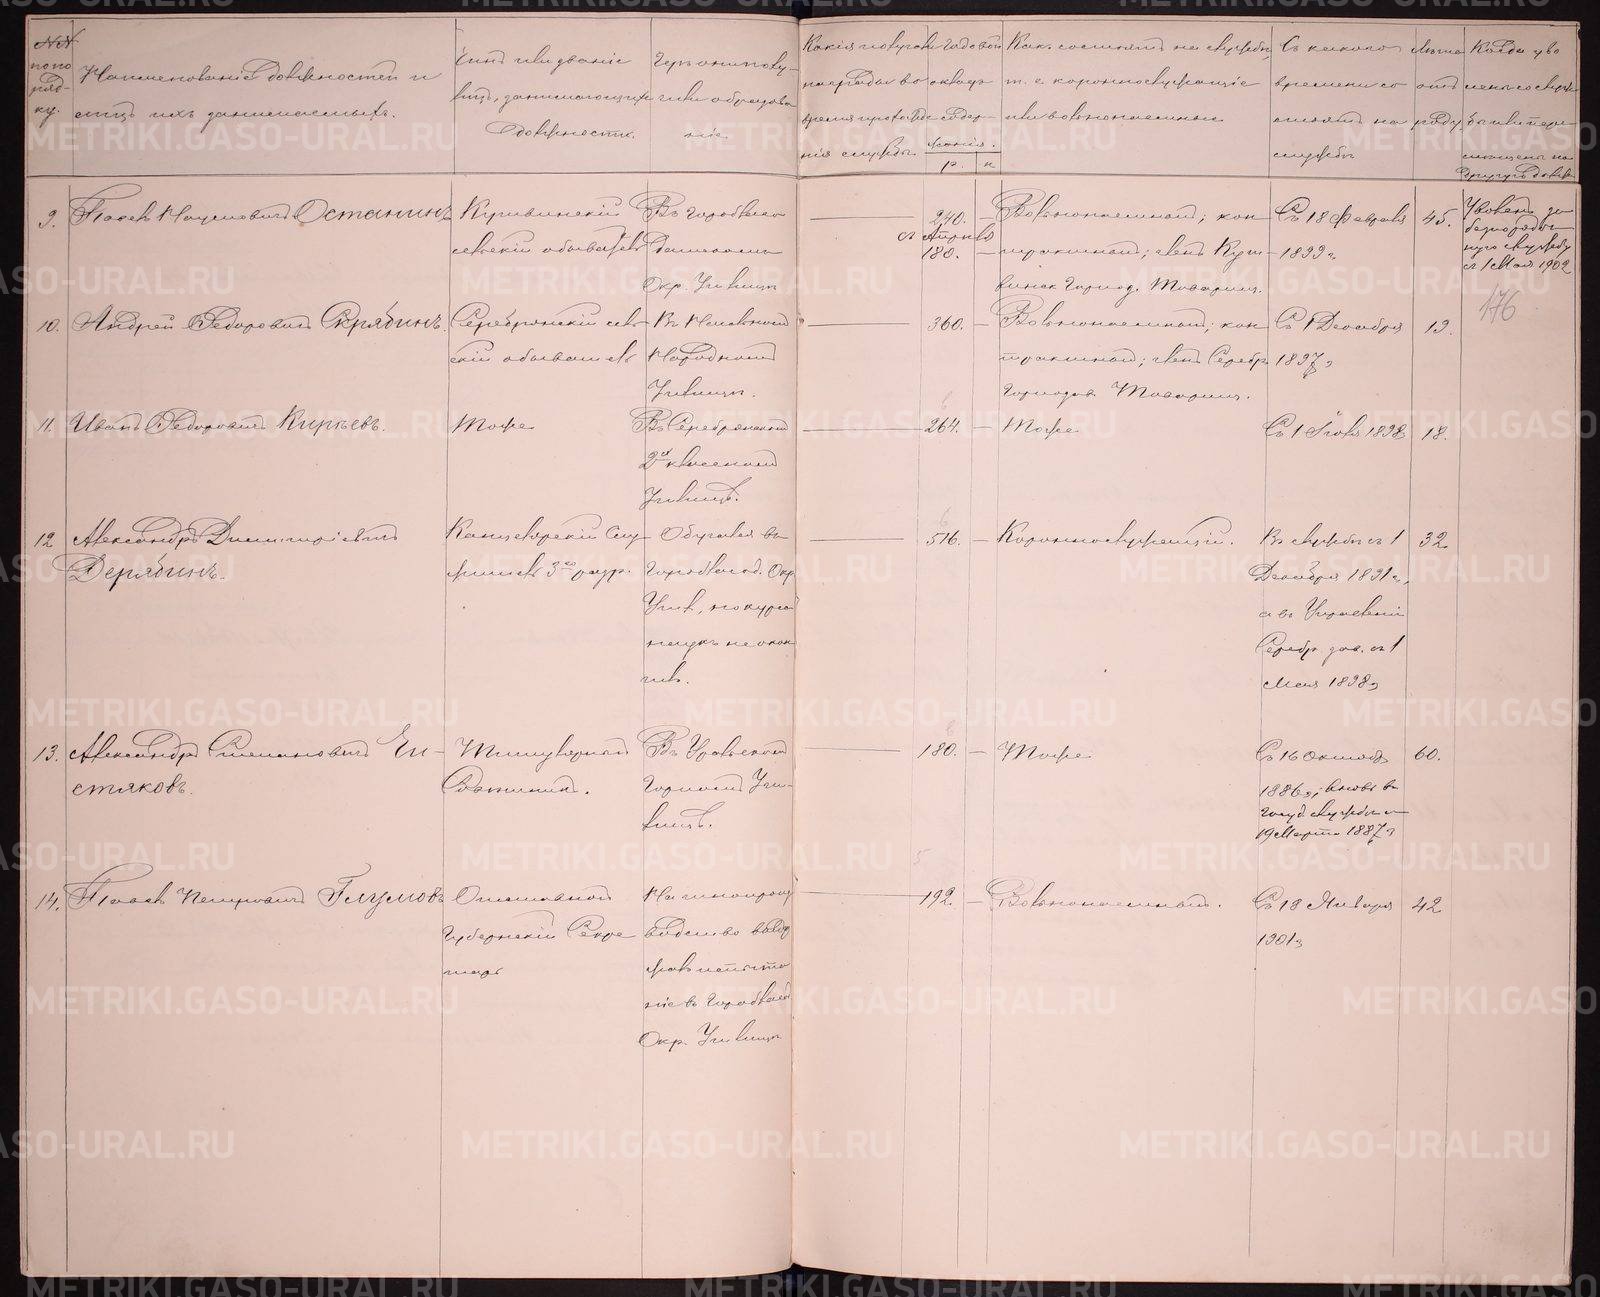 №№ по по ряд- ку.
Наименованіе должностей и
лицъ ихъ занимаемыхъ.
Чинъ или званіе
лицъ, занимающихъ
должность.
Какія получали
награды во
время прохожде
нія службы
Годовой
оклад
содер-
жанія.
р. к
Какъ состоятъ на службѣ,
т. е. короннослужащіе
или вольнонаемные
Съ какого
времени со
стоятъ на
службѣ
Лѣта
отъ
роду
Когда уво
9. Павелъ Наумовичъ Останинъ
Кушвинскій
сельскій обыватель
Въ Городбла-
годатскомъ
Окр. Училищѣ
240. —
съ Апрѣля
180. —
Вольнонаемный; кон
трактный; членъ Куш-
винск. Горнозав. Товарищ.
Съ 18 Февраля
1899 г.
45.
Уволенъ за
безпорядоч
ную службу
съ 1 Мая 1902
176
10. Андрей Ѳедоровичъ Скрябинъ.
Серебрянскій сель
скій обыватель
Народномъ
Училищѣ.
360. —
Вольнонаемный; кон
трактный; членъ Серебр.
Горнозав. Товарищ.
Съ 1 Декабря
1897 г
19.
11. Иванъ Ѳедоровичъ Кирьевъ.
Тоже
Въ Серебрянскомъ
2хъ классномъ
Училищѣ.
264. —
Тоже
Съ 1 Іюля 1898
18.
12 Александръ Димитріевичъ
Дерябинъ.
Канцелярскій Слу
житель 3го разр.
Обучался въ
Городблагод. Окр.
Учил., но курса
наукъ не окон
чилъ.
516. —
Короннослужащій.
Въ службѣ съ 1
Декабря 1891 г.,
а въ Управленіи
Серебр. зав. съ 1
Мая 1898 г
32
13. Александръ Степановичъ Чи-
стяковъ.
Титулярный
Совѣтникъ.
Въ Уральскомъ
Горномъ Учи-
лищѣ.
180. —
Тоже
Съ 16 Октября
1886 г.; вновь въ
госуд. службѣ съ
19 Марта 1887 г
60.
14. Павелъ Петровичъ Глумовъ
Отставной
Губернскій Секре
тарь
ніе въ Городблагод
Окр. Училищѣ
192. —
Вольнонаемный.
Съ 18 Января
1901 г
42
METRIKI.GASO-URAL.RU